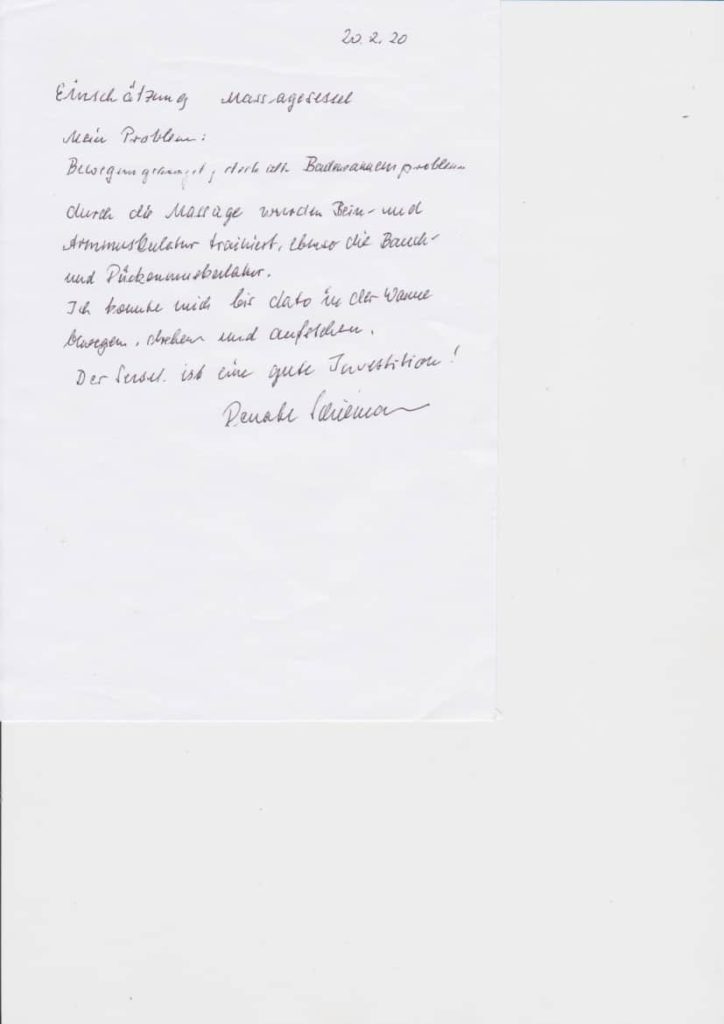 20.2.20
Einschätzung Massagesessel
Mein Problem:
Badewannenproblem
durch die Massage wurden Bein- und
Armmuskulatur trainiert, ebenso die Bauch-
und Rückenmuskulatur.
Ich konnte mich bis dato in der Wanne
bewegen, drehen und aufstehen.
Der Sessel ist eine gute Investition!
Renate